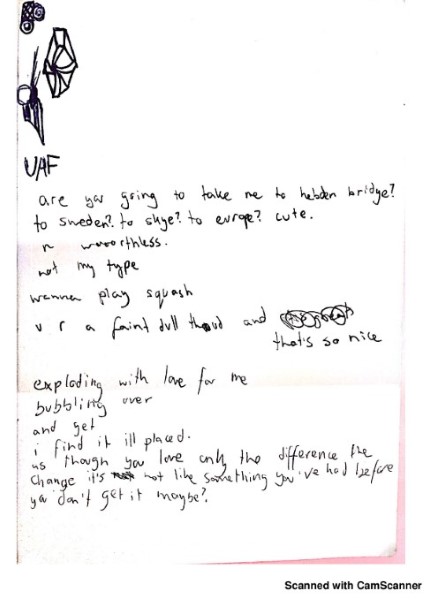 UAF
are you going to take me to hebden bridge?
to sweden? to skye? to europe? cute.
n wororthless.
not my type
wanna play squash
u r a faint dull thud and
that's so nice
exploding with love for me
bubbling over
and get
i find it ill placed.
as though you love only the difference the
change it's not like something you've had before
you don't get it maybe?
Scanned with CamScanner